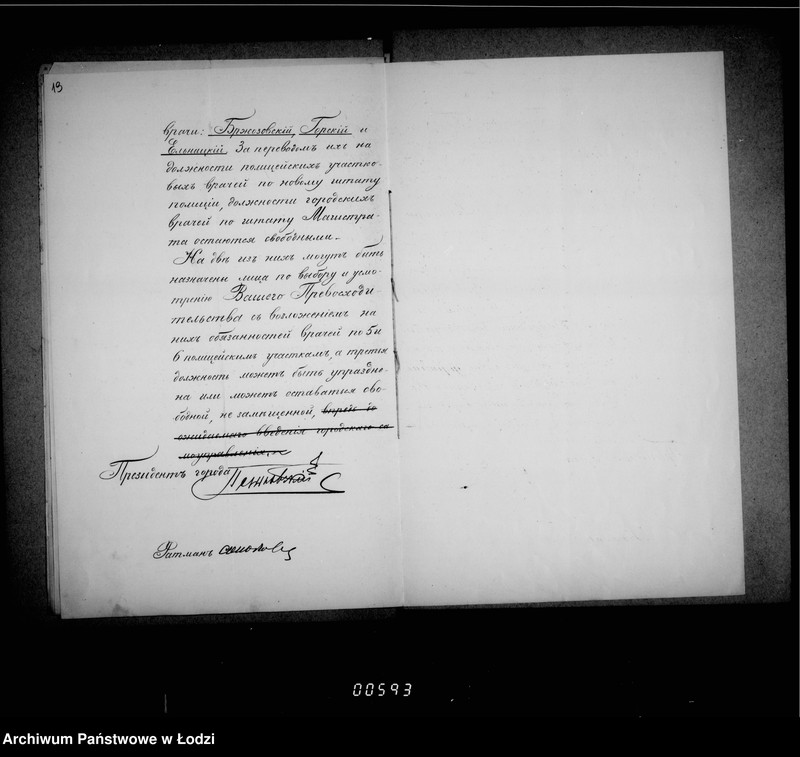 13
врачи: Бржозовскій, Горскій и
Ельницкій За переводомъ ихъ на
должности полицейскихъ участко-
выхъ врачей по новому штату
полиціи, должности городскихъ
врачей по штату Магистра-
та остаются свободными.-
На двѣ изъ нихъ могутъ быть
назначены лица по выбору и усмо-
трѣнію Вашего Превосходи-
тельства съ возложеніемъ на
нихъ обязанностей врачей по 5 и
6 полицейскимъ участкамъ, а третья
должность можетъ быть упраздне-
на или можетъ оставаться сво-
бодной, не замѣщенной, впредь до
ожидаемаго введенія городского са
моуправленія,
Президентъ города
Ратманъ
00593
Archiwum Państwowe w Łodzi